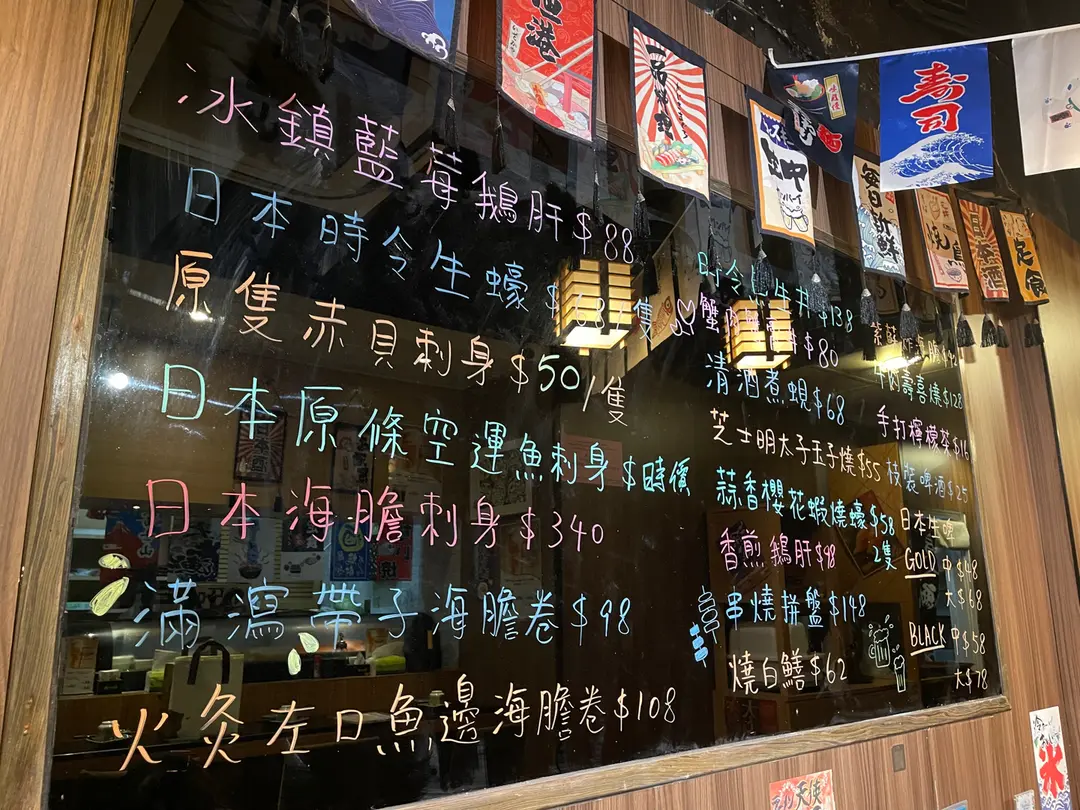 冰鎮藍莓鵝肝$88
日本時令生蠔 /隻
原隻赤貝刺身$50/隻
日本原條空運魚刺身$時價
日本海膽刺身$340
滿瀉帶子海膽卷$98
火炙左口魚邊海膽卷$108
時令 $138
蟹肉 $80
清酒煮蜆$68
芝士明太子玉子燒$55
蒜香櫻花蝦燒蠔$58
2隻
香煎鵝肝$98
串燒拼盤$148
燒白鱔$62
壽喜燒$128
手打檸檬茶$16
枝裝啤酒$25
日本生啤
GOLD 中$48
大$68
BLACK 中$58
大$78
壽司
每日新鮮
日本酒
定食
氷
天使